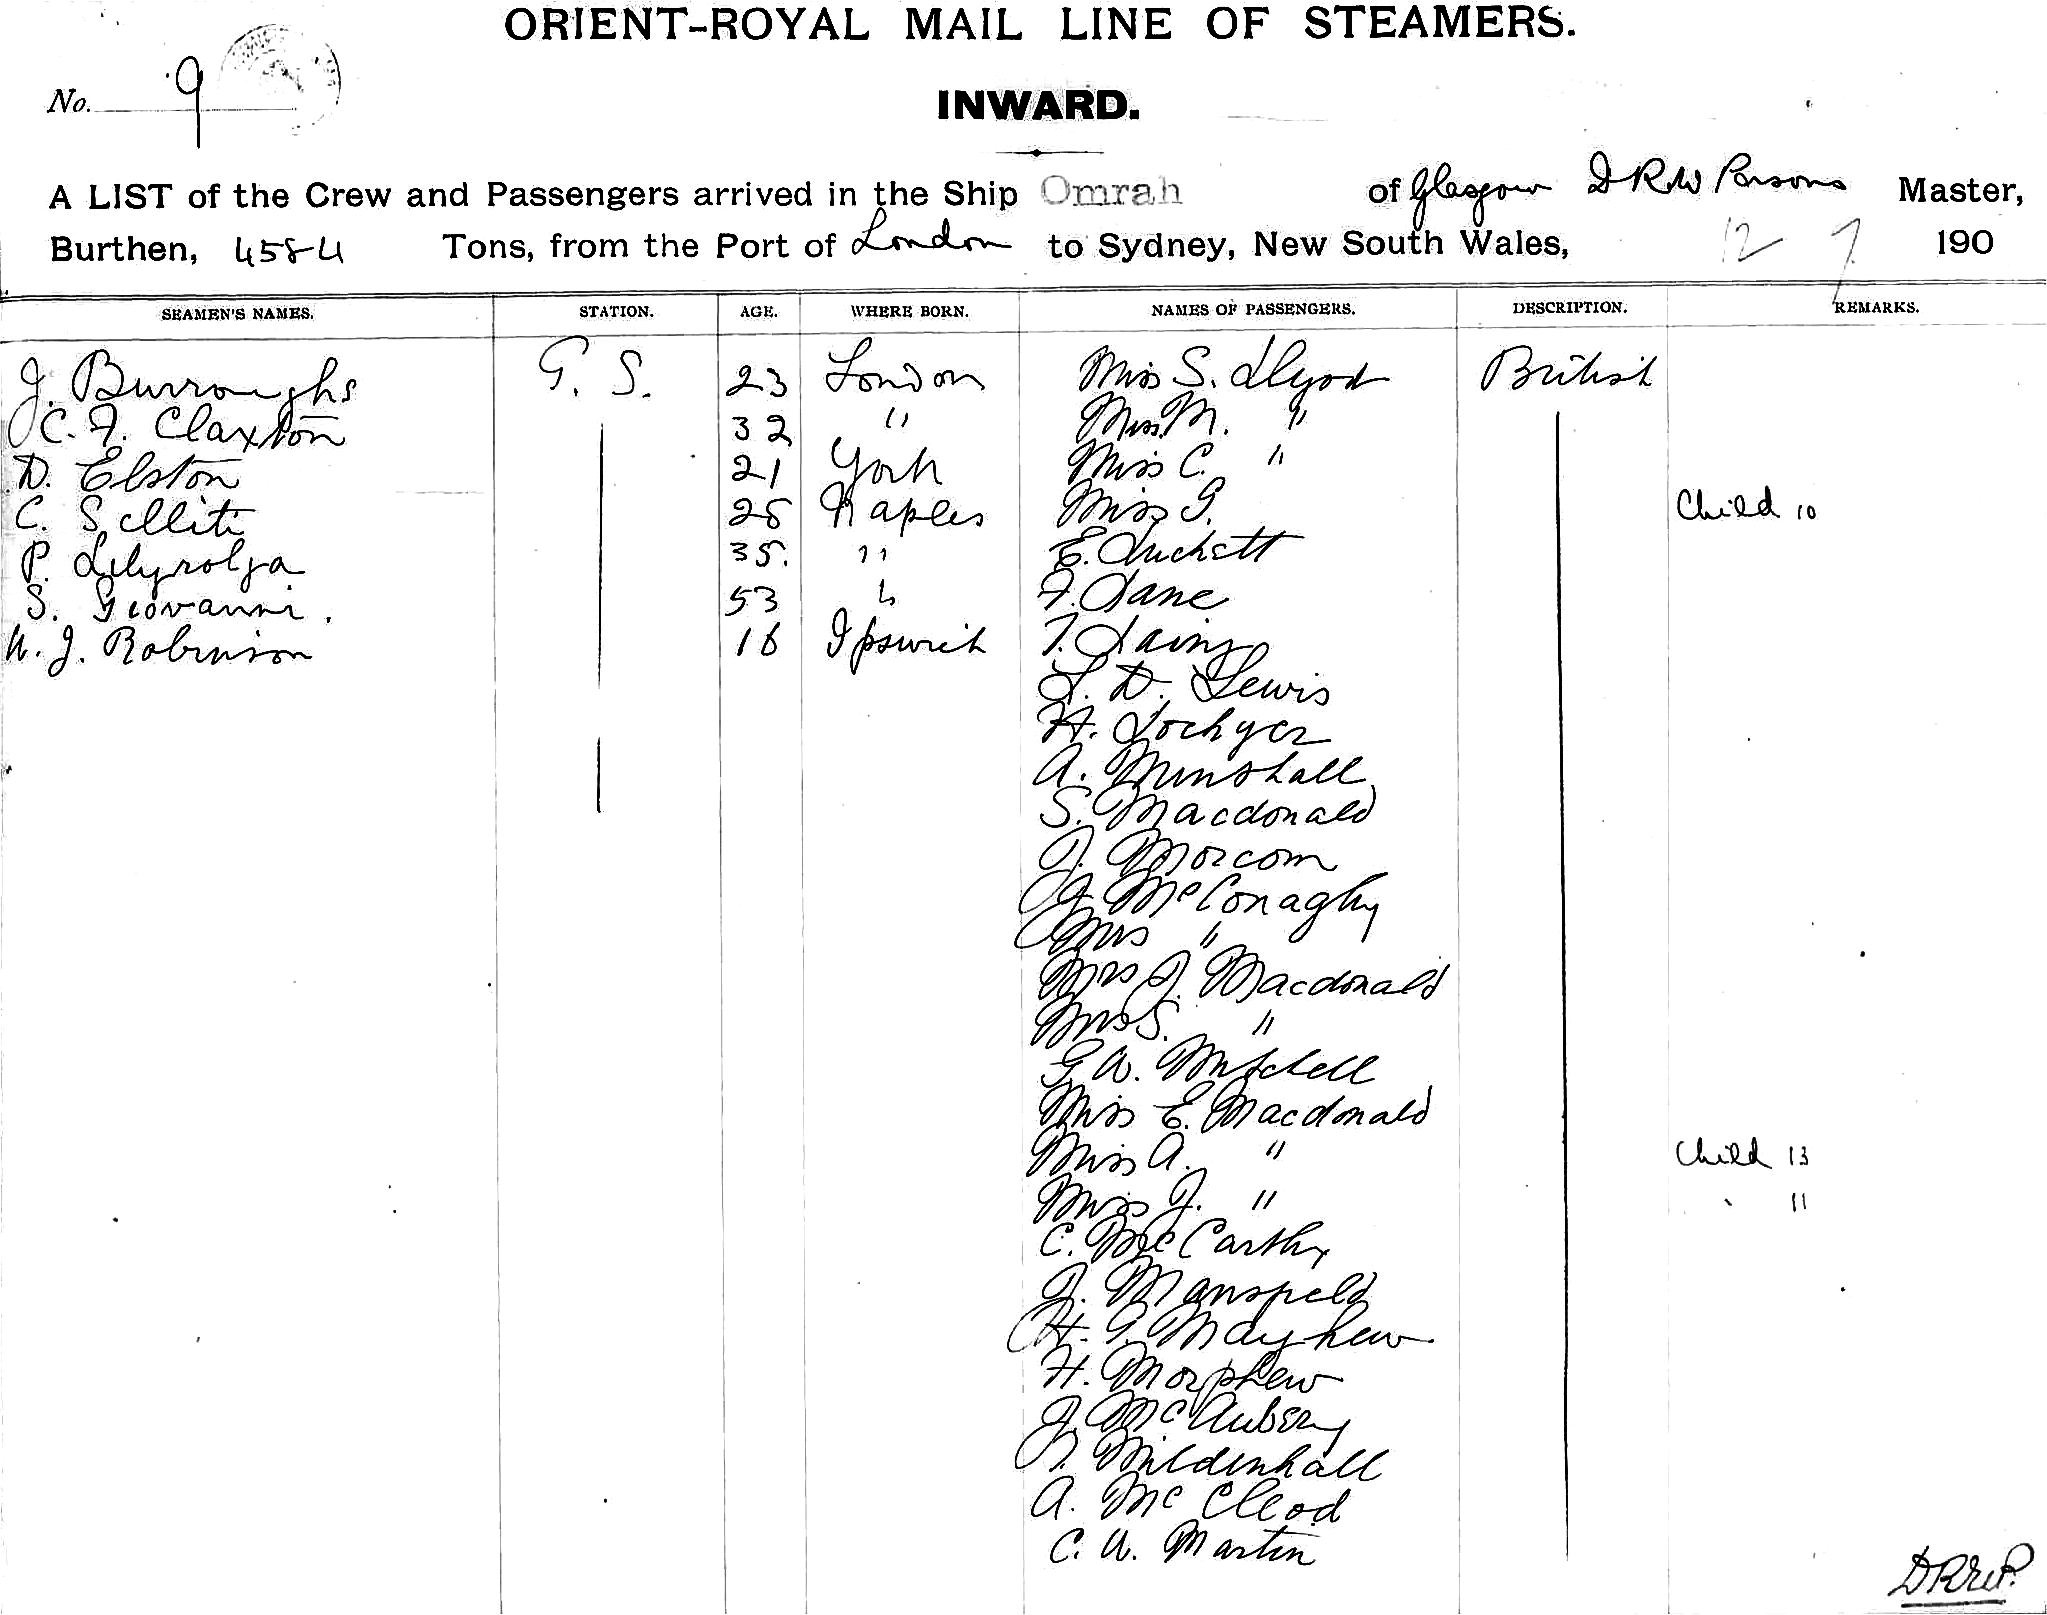 ORIENT-ROYAL MAIL LINE OF STEAMERS.
No. 9
INWARD.
A LIST of the Crew and Passengers arrived in the Ship Omrah of Glasgow D R W Parsons Master,
Burthen, 4584 Tons, from the Port of London to Sydney, New South Wales, 12 7 190
SEAMEN'S NAMES. STATION. AGE. WHERE BORN. NAMES OF PASSENGERS. DESCRIPTION. REMARKS.
J. Burroughs G. S. 23 London Miss S. Llyod British
C. F. Claxton 32 " Miss M. "
D. Elston 21 York Miss C. "
C. 26 Naples Miss G. Child 10
P. 35. " E. Luckett
S. Giovanni. 53 " F. Lane
W. J. Robinson 16 Ipswich T. Laing
L. D. Lewis
H. Lockyer
A. Munshall
S. Macdonald
J. Morcom
J. McConaghy
Mrs "
Mrs J. Macdonald
Miss S. "
G. W. Mitchell
Miss E. Macdonald
Miss A. " Child 13
Miss J. " " 11
C. McCarthy
J. Mansfield
H. G. Mayhew
H. Morphew
J. McAubrey
T. Mildenhall
A. McCleod
C. W. Martin
DRWP.